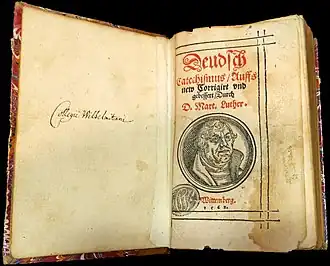 Collegii Wilhelmitani
Deudsch
Catechismus / Auffs
new Corrigirt vnd
gebessert / Durch
D. Mart. Luther.
Wittemberg.